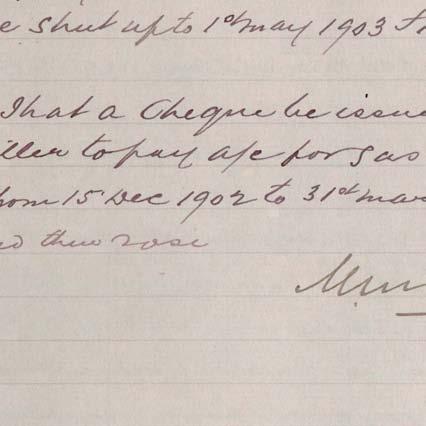 e shut up to 1st may 1903
That a Cheque be issue
iller to pay a/c for gas
from 15 Dec 1902 to 31st mar
ed then rose